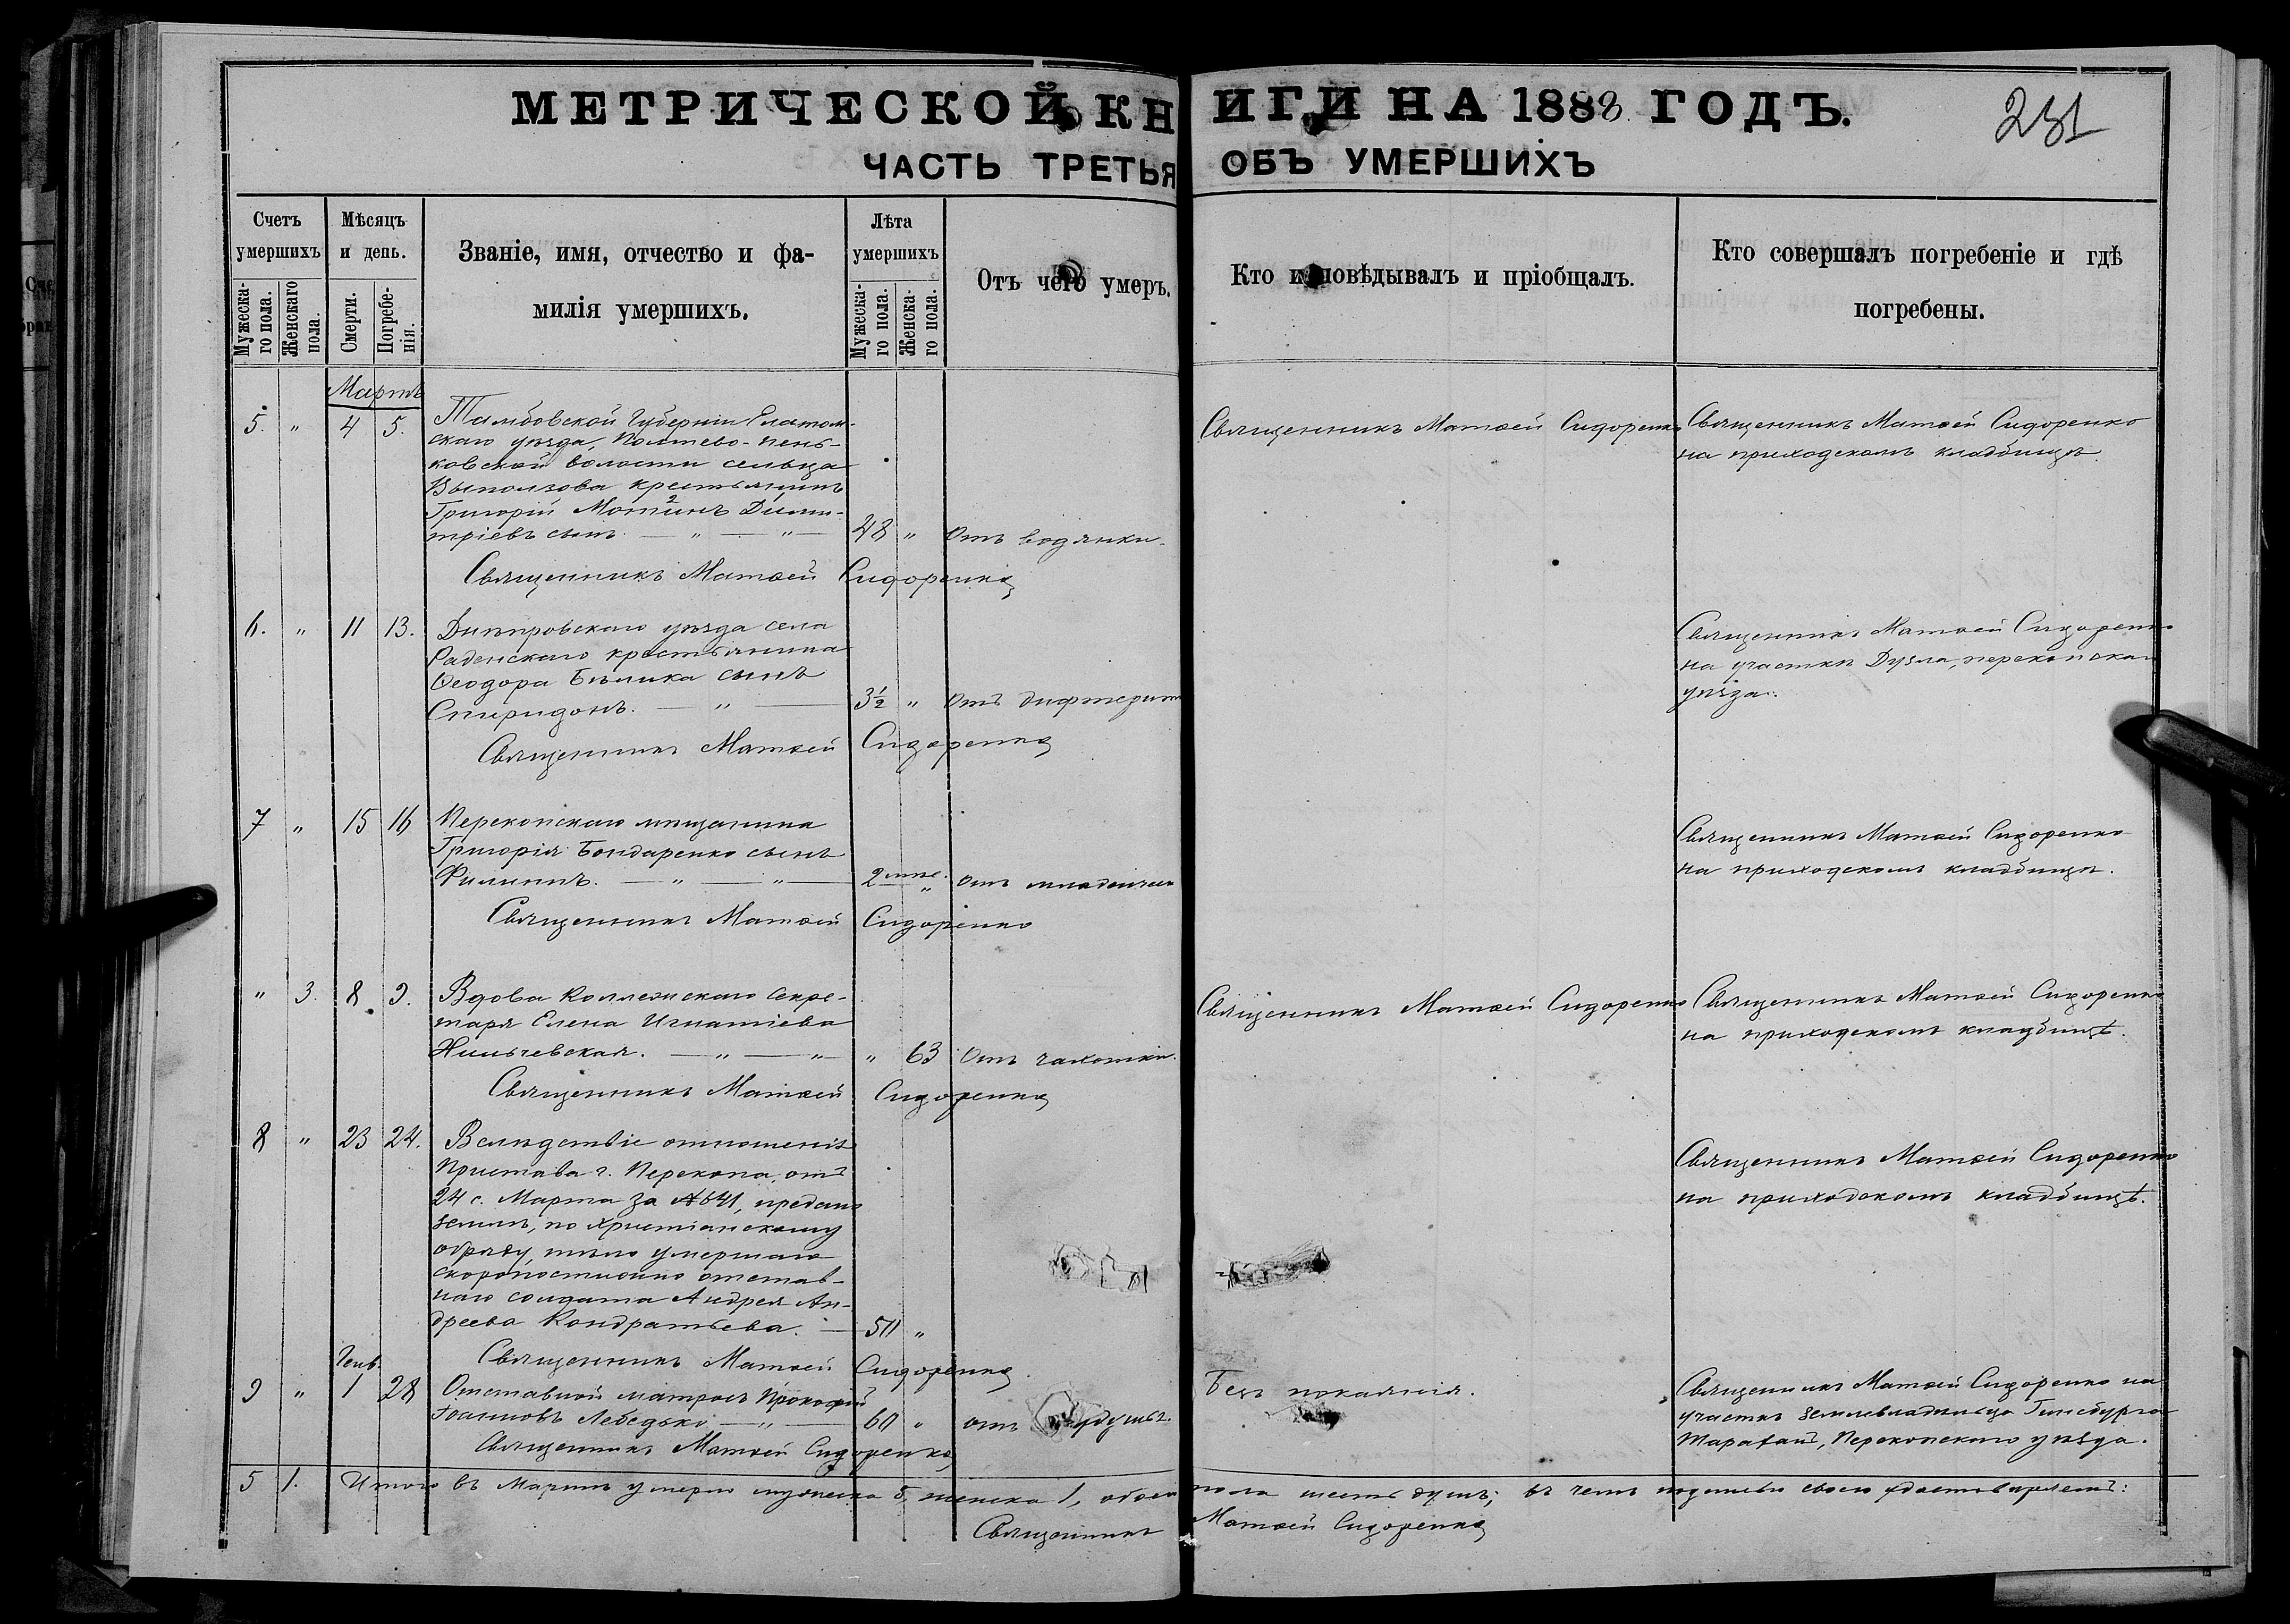 МЕТРИЧЕСКОЙ КНИГИ НА 1888 ГОДЪ.
231
ЧАСТЬ ТРЕТЬЯ ОБЪ УМЕРШИХЪ
Счетъ умершихъ
Мужескаго пола.
Женскаго пола.
Мѣсяцъ и день.
Смерти.
Погребенія.
Званіе, имя, отчество и фа-
милія умершихъ.
Лѣта умершихъ
Мужескаго пола.
Женскаго пола.
Отъ чего умеръ.
Кто исповѣдывалъ и пріобщалъ.
Кто совершалъ погребеніе и гдѣ
погребены.
Мартъ
5. " 4 5.
Тамбовской Губерніи Елатом-
скаго уѣзда,
ковской волости сельца
Выползова крестьянинъ
Григорій Мотинъ Дими-
тріевъ сынъ. — " — " —
48 " Отъ водянки.
Священникъ Матѳей Сидоренко
Священникъ Матѳей Сидоренко
на приходскомъ кладбищѣ.
Священникъ Матѳей Сидоренко
6. " 11 13.
Днѣпровскаго уѣзда села
Раденскаго крестьянина
Ѳеодора Бѣлика сынъ
Спиридонъ. — " —
3½ " Отъ дифтерит
Священникъ Матѳей Сидоренко
на участкѣ Дузла, перекопскаго
уѣзда.
Священникъ Матѳей Сидоренко
7 " 15 16
Перекопскаго мѣщанина
Григорія Бондаренко сынъ
Филиппъ. — " — " —
2 " отъ
Священникъ Матѳей Сидоренко
на приходскомъ кладбищѣ.
Священникъ Матѳей Сидоренко
" 3. 8. 9.
Вдова Коллежскаго Секре-
таря Елена Игнатіева
— " — " —
" 63 Отъ чахотки.
Священникъ Матѳей Сидоренко
Священникъ Матѳей Сидоренко
на приходскомъ кладбищѣ.
Священникъ Матѳей Сидоренко
8 " 23 24.
Вслѣдствіе отношенія
Пристава г. Перекопа, отъ
24 с. Марта за № 641, предано
землѣ, по христіанскому
обряду тѣло умершаго
скоропостижно отстав-
наго солдата Андрея Ан-
дреева Кондратьева. —
50 "
Священникъ Матѳей Сидоренко
на приходскомъ кладбищѣ.
Священникъ Матѳей Сидоренко.
Генв.
9 " 1 28
Отставной матросъ Прокофій
Іоанновъ Лебедько — " —
60 " отъ
Безъ покаянія.
Священникъ Матѳей Сидоренко на
участкѣ землевладѣльца Гинсбурга
, Перекопскаго уѣзда.
Священникъ Матѳей Сидоренко
5 1. Итого въ Мартѣ умерло мужеска 5, женска 1, обоего пола шесть душъ; въ чемъ подписью своею удостовѣряемъ:
Священникъ Матѳей Сидоренко